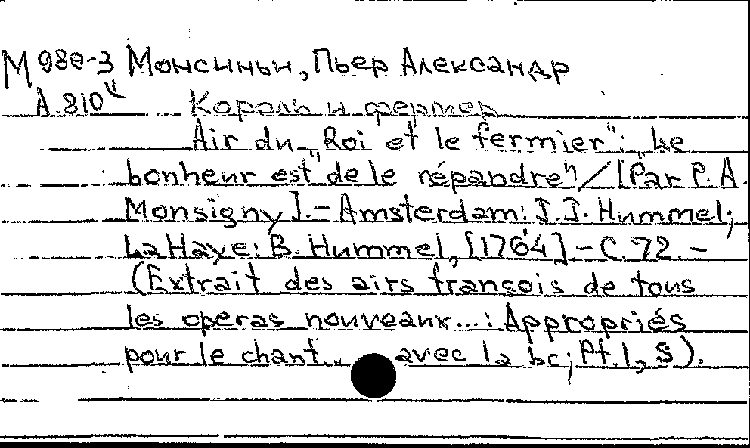 М 980-3 Монсиньи, Пьер Александр
А 810
Король и фермер
Air du „Roi et le fermier": „Le
bonheur est de le répandre"/[Par P. A.
Monsigny].- Amsterdam: J.J. Hummel;
La Haye: B. Hummel, [1764].- С. 72.-
(Extrait des airs françois de tous
les operas nouveaux...: Appropriés
pour le chant... avec la bc; Pt. 1, 5).